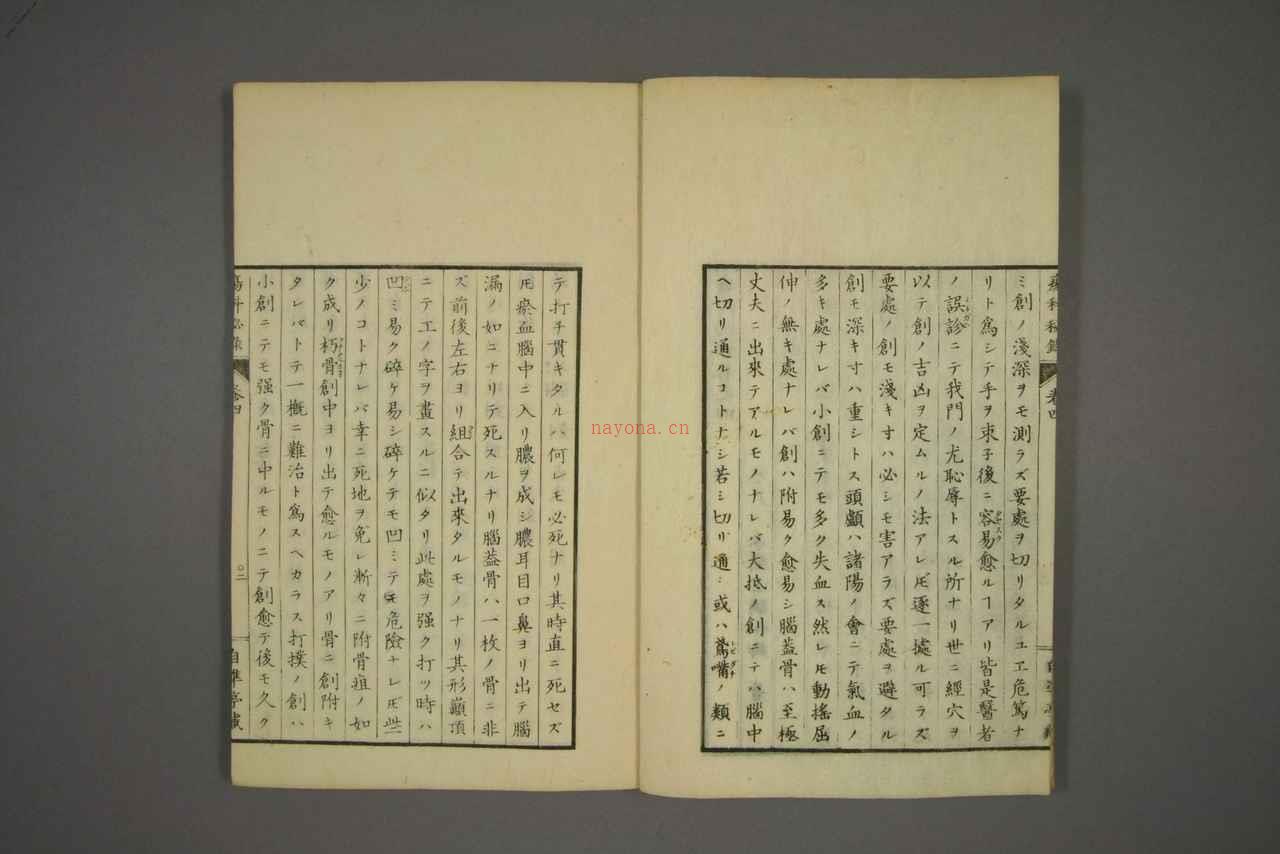 ミ創ノ淺深ヲモ測ラズ要處ヲ切リタルユヱ危篤ナ
リト爲シテ手ヲ束子後ニ容易愈ルヿアリ皆是醫者
ノ誤診ニテ我門ノ尤恥辱トスル所ナリ世ニ經穴ヲ
以テ創ノ吉凶ヲ定ムルノ法アレ𪜈逐一據ル可ラズ
要處ノ創モ淺キ寸ハ必シモ害アラズ要處ヲ避タル
創モ深キ寸ハ重シトス頭顱ハ諸陽ノ會ニテ氣血ノ
多キ處ナレバ小創ニテモ多ク失血ス然レ𪜈動搖屈
伸ノ無キ處ナレバ創ハ附易ク愈易シ腦蓋骨ハ至極
丈夫ニ出來テアルモノナレバ大抵ノ創ニテハ腦中
ヘ切リ通ルコトナシ若シ切リ通シ或ハ鳶嘴ノ類ニ
テ打チ貫キタルハ何レモ必死ナリ其時直ニ死セズ
𪜈瘀血腦中ニ入リ膿ヲ成シ膿耳目口鼻ヨリ出テ腦
漏ノ如ニナリテ死スルナリ腦蓋骨ハ一枚ノ骨ニ非
ズ前後左右ヨリ組合テ出來タルモノナリ其形巓頂
ニテ工ノ字ヲ畫スルニ似タリ此處ヲ强ク打ツ時ハ
凹ミ易ク碎ケ易シ碎ケテモ凹ミテモ危險ナレ𪜈些
少ノコトナレバ幸ニ死地ヲ免レ漸々ニ附骨疽ノ如
ク成リ朽骨創中ヨリ出テ愈ルモノアリ骨ニ創附キ
タレバトテ一概ニ難治ト爲スヘカラス打撲ノ創ハ
小創ニテモ强ク骨ニ中ルモノニテ創愈テ後モ久ク
瘍科秘錄
卷四
nayona.cn